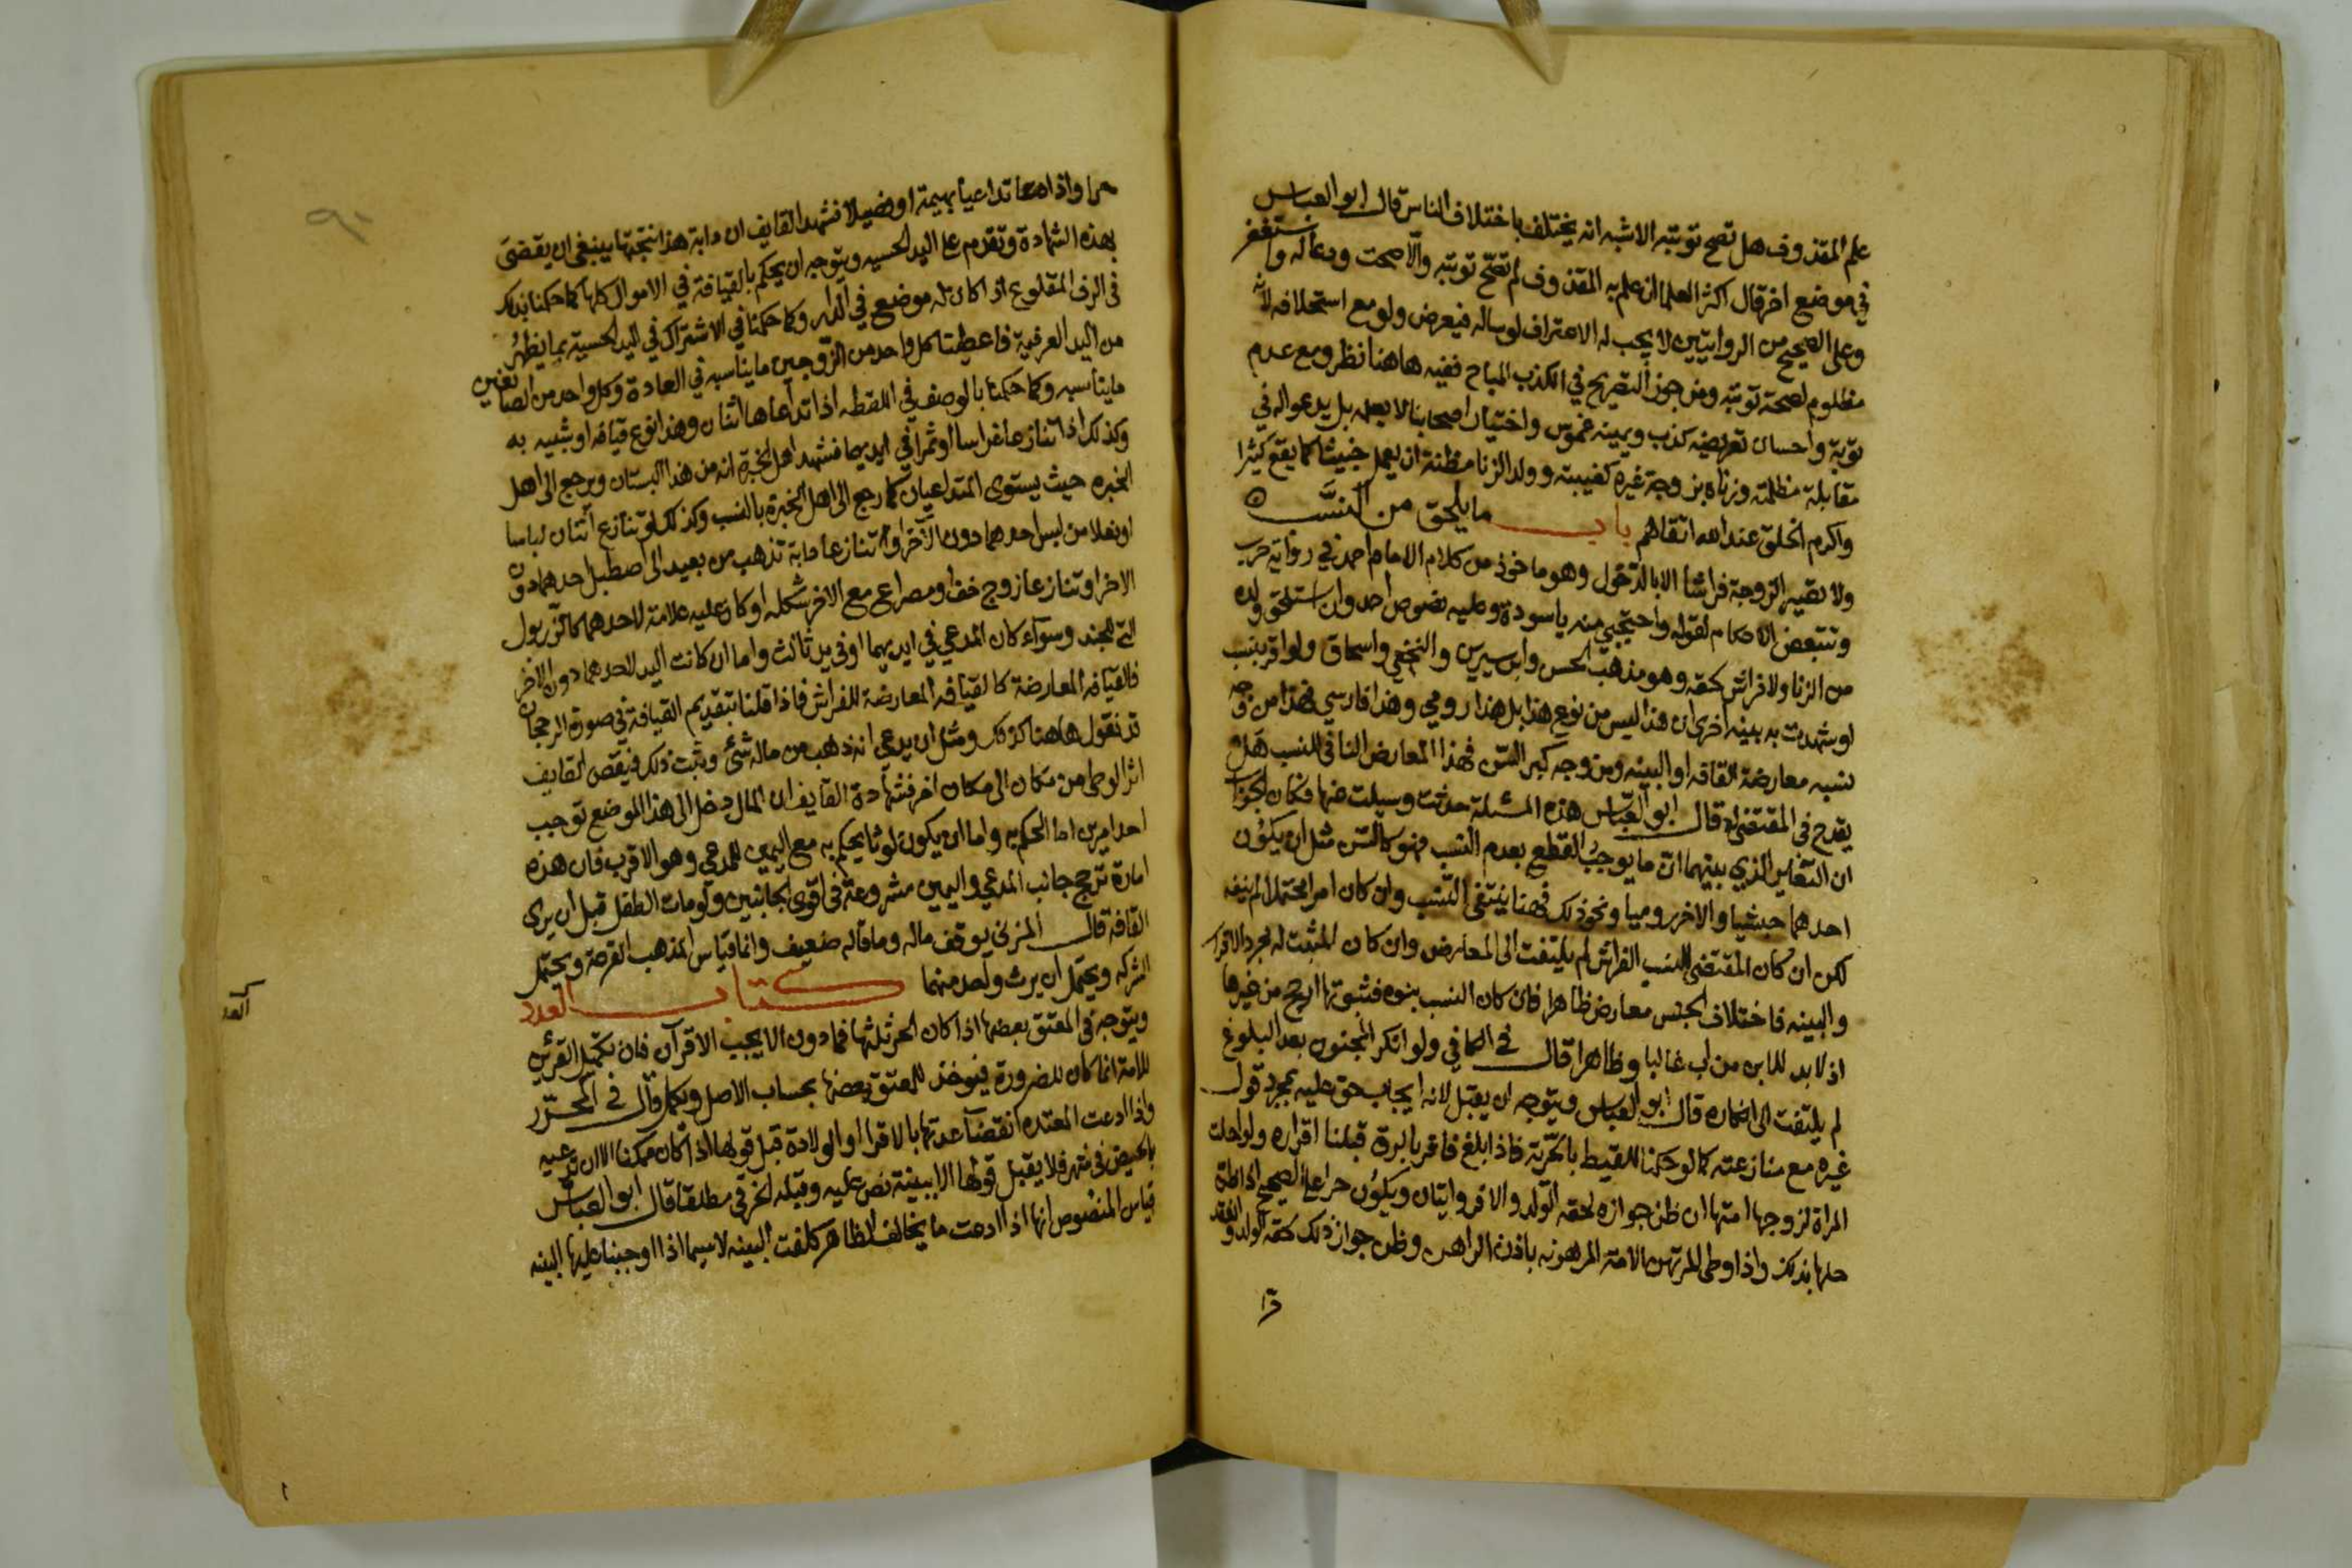 علم المقذوف هل تصح توبته الاشبه انه يختلف باختلاف الناس قال ابو العباس
في موضع اخر قال اكثر العلما ان علم به المقذوف لم تصح توبته والا صحت ودعا له واستغفر
وعلى الصحيح من الروايتين لا يجب له الاعتراف لو ساله فيعرض ولو مع استحلافه لانه
مظلوم لصحة توبته ومن جوز التصريح في الكذب المباح ففيه هاهنا نظر ومع عدم
توبة واحسان تعريضه كذب ويمينه غموس واختيار اصحابنا لا يعلمه بل يدعو له في
مقابلة مظلمته وزناه بزوجة غيره كغيبته وولد الزنا مظنة ان يعمل خبيثا كما يقع كثيرا
واكرم الخلق عند الله اتقاهم باب ما يلحق من النسب
ولا تصير الزوجة فراشا الا بالدخول وهو ماخوذ من كلام الامام احمد في رواية حرب
وتتبعض الاحكام لقوله واحتجبي منه يا سودة وعليه نصوص احمد وان استلحق ولده
من الزنا ولا فراش لحقه وهو مذهب الحسن وابن سيرين والنخعي واسحاق ولو اقر بنسب
او شهدت به بينه اخرى ان هذا ليس من نوع هذا بل هذا رومي وهذا فارسي فهذا من وجه
نسبه معارضة القافه او البينه ومن وجه كبر السن فهذا المعارض النافي للنسب هل
يقدح في المقتضي له قال ابو العباس هذه المسئلة حدثت وسيلت عنها فكان الجواب
ان التغاير الذي بينهما ان ما يوجب القطع بعدم النسب فهو كالسن مثل ان يكون
احدهما حبشيا والاخر روميا ونحو ذلك فهنا ينتفي النسب وان كان امرا محتملا لم ينفه
لكن ان كان المقتضي للنسب الفراش لم يلتفت الى المعارض وان كان المثبت له مجرد الاقرار
والبينه فاختلاف الجنس معارض ظاهرا فان كان النسب بنوه فثبوتها ارجح من غيرها
اذ لا بد للابن من اب غالبا وظاهرا قال في الكافي ولو انكر المجنون بعد البلوغ
لم يلتفت الى انكاره قال ابو العباس ويتوجه ان يقبل لانه ايجاب حق عليه بمجرد قول
غيره مع منازعته كما لو حكمنا للقيط بالحرية فاذا بلغ فاقر بالرق قبلنا اقراره ولو احلت
المراة لزوجها امتها ان ظن جوازه لحقه الولد والا فروايتان ويكون حرا على الصحيح اذا ظن
حلها بذلك واذا وطى المرتهن الامة المرهونه باذن الراهن وظن جواز ذلك لحقه الولد وانعقد
حرا
حرا واذا تداعيا بهيمة او فصيلا فشهد القايف ان دابة هذا انتجتها ينبغي ان يقضى
بهذه الشهادة وتقدم على اليد الحسيه ويتوجه ان يحكم بالقيافة في الاموال كلها كما حكمنا بذلك
في الرف المقلوع اذا كان له موضع في الدار وكما حكمنا في الاشتراك في اليد الحسية بما يظهر
من اليد العرفية فاعطينا كل واحد من الزوجين ما يناسبه في العادة وكل واحد من الصانعين
ما يناسبه وكما حكمنا بالوصف في اللقطه اذا تداعاها اثنان وهذا نوع قيافه او شبيه به
وكذلك اذا تنازعا غراسا او ثمرا في ايديهما فشهد اهل الخبرة انه من هذا البستان ويرجع الى اهل
الخبره حيث يستوى المتداعيان كما رجع الى اهل الخبرة بالنسب وكذلك لو تنازع اثنان لباسا
او نعلا من لبس احدهما دون الاخر او تنازعا دابة تذهب من بعيد الى اصطبل احدهما دون
الاخر او تنازعا زوج خف او مصراع مع الاخر شكله او كان عليه علامة لاحدهما كالزربول
التي للجند وسوآء كان المدعي في ايديهما او في يد ثالث واما ان كانت اليد لاحدهما دون الاخر
فالقيافه المعارضة كالقيافه المعارضة للفراش فاذا قلنا بتقديم القيافة في صورة الرجحان
قد نقول هاهنا كذلك ومثل ان يدعي انه ذهب من ماله شئ ويثبت ذلك فيقص القايف
اثر الوطى من مكان الى مكان اخر فشهادة القايف ان المال دخل الى هذا الموضع توجب
احد امرين اما الحكم به واما ان يكون لوثا يحكم به مع اليمين للمدعي وهو الاقرب فان هذه
امارة ترجح جانب المدعي واليمين مشروعة في اقوى الجانبين ولو مات الطفل قبل ان يرى
القافة قال المزني يوقف ماله وما قاله ضعيف وانما قياس المذهب القرعة ويحتمل
الشركه ويحتمل ان يرث واحد منهما كتاب العدد
ويتوجه في المعتق بعضها اذا كان الحر ثلثها فما دون الا يجب الاقرآن فان تكميل القرئين
للامة انما كان للضرورة فيوخذ للمعتق بعضها بحساب الاصل ويكمل قال في المحرر
واذا ادعت المعتده انقضآ عدتها بالاقرا او الولادة قبل قولها اذا كان ممكنا الا ان تدعيه
بالحيض في شهر فلا يقبل قولها الا ببينة نص عليه وقبله الخرقي مطلقا قال ابو العباس
قياس المنصوص انها اذا ادعت ما يخالف الظاهر كلفت البينه لا سيما اذا اوجبنا عليها البينه
العدد
٩٠